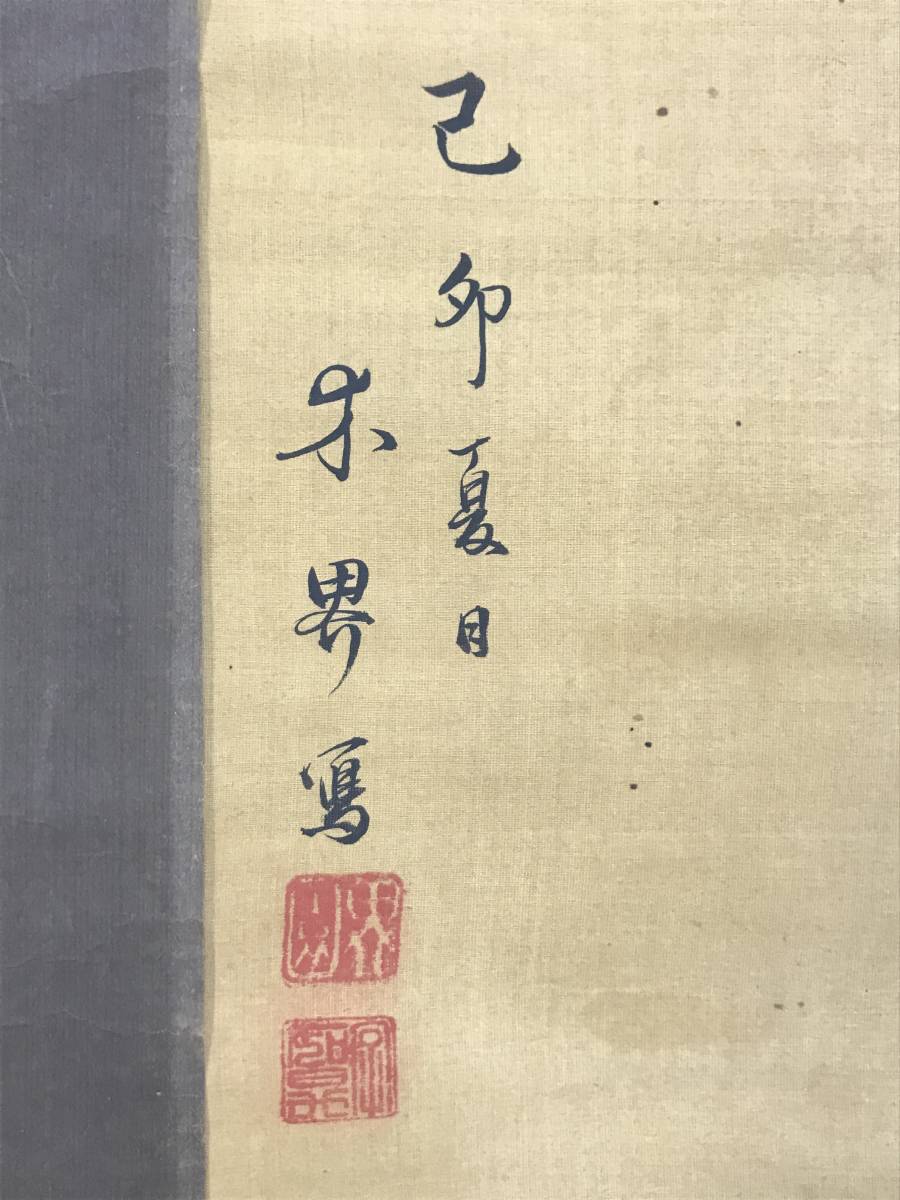 己卯夏日
木界寫